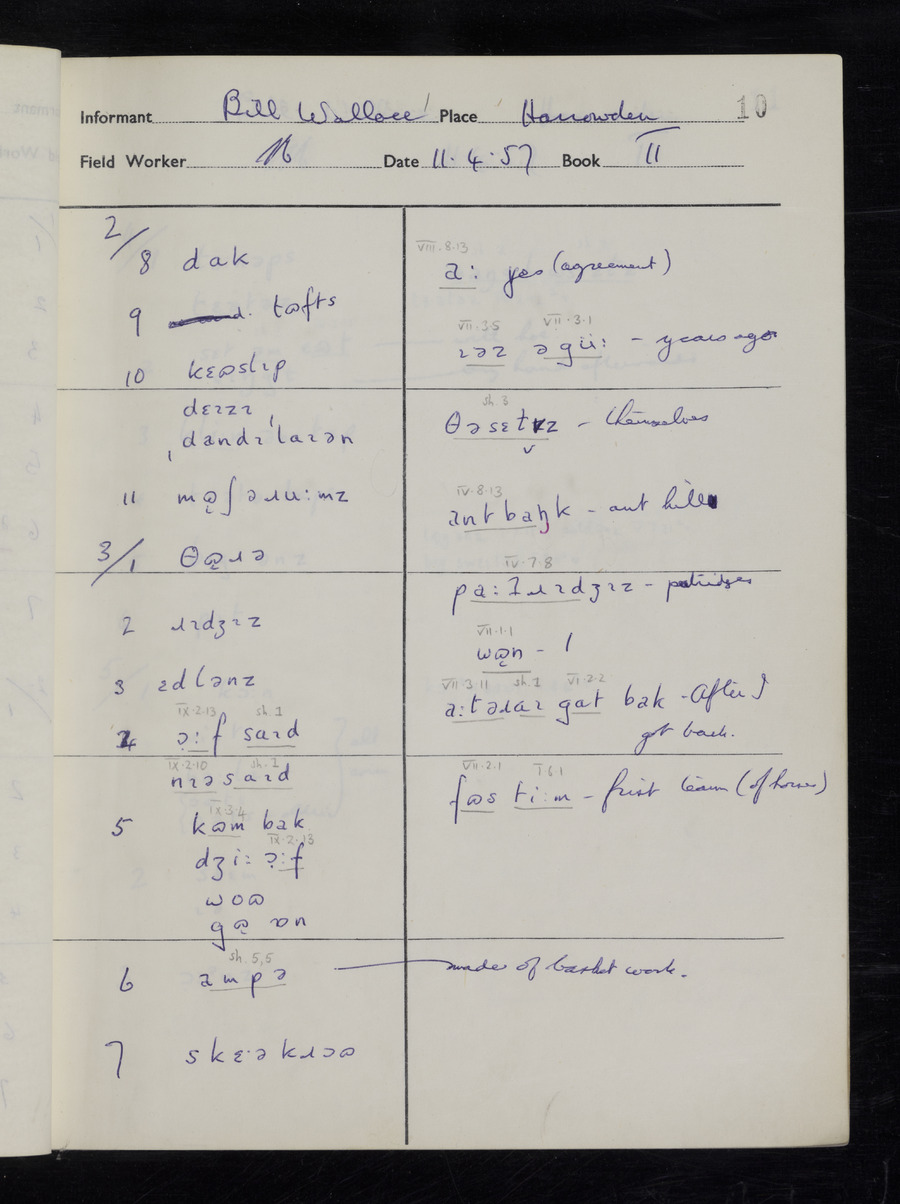 Informant Bill Wallace Place Harrowden 10
Field Worker Date 11.4.57 Book II
2/8 dak
9 tɷfts
10 kɛɷslɪp
dɛɪzɪ
ˌdandɪˈlaɪən
11 mɷ̞ʃəɹuːmz
3/1 θɷ̞ɹə
2 ɹɪdʒɪz
3 ɛdlənz
IX.2.13 sh.1
4 ɔ̞ːf saɪd
IX.2.10 sh.1
nɪəsaɪd
IX.3.4
5 kɷm bak
IX.2.13
dʒiː ɔ̞ːf
woɷ
gɷ̞ ɒn
sh. 5,5
6 ampə
7 skɛˑəkɹɔɷ
VIII.8.13
aː yes (agreement)
VII.3.5 VII.3.1
ɪəz əgüː - years ago
sh.3
- themselves
IV.8.13
antbaŋk - ant hill
IV.7.8
paːʔɹɪdʒɪz - patridges
VII.1.1
wɷ̞n - 1
VII.3.11 sh.1 VI.2.2
aːtəɹaɪ gat bak - After I
got back.
VII.2.1 I.6.1
fɷs tiːm - first team (of horses)
made of basket work.